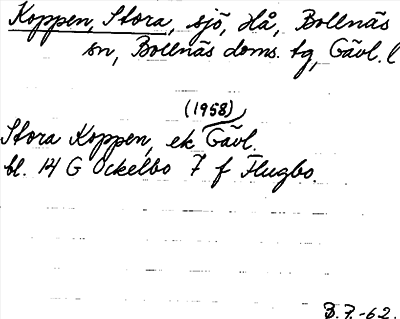 Koppen, Stora, sjö, Hå, Bollnäs
sn, Bollnäs doms. tg, Gävl. l
(1958)
Stora Koppen, ek Gävl.
bl. 14 G Ockelbo 7 f Flugbo.
B. 7. -62.